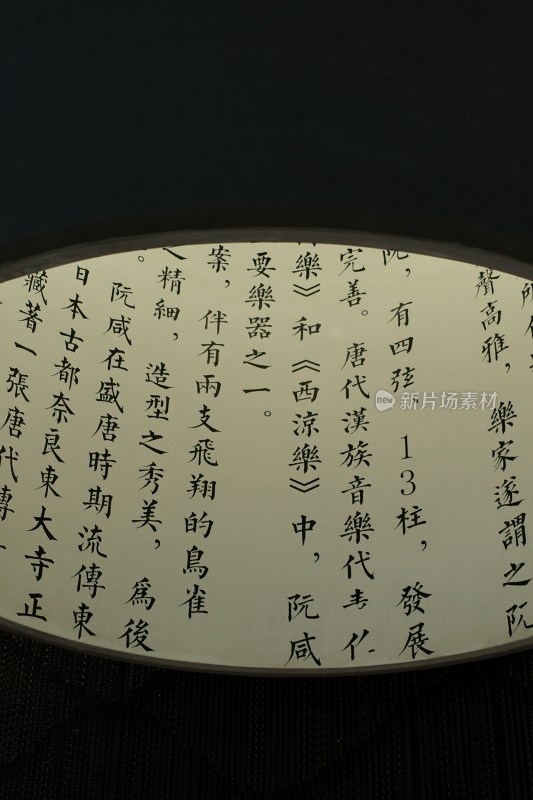 所
聲高雅，樂家遂謂之阮
阮，有四弦，13柱，發展
完善。唐代漢族音樂代表作
樂》和《西涼樂》中，阮咸
要樂器之一。
案，伴有兩支飛翔的鳥雀
之精細，造型之秀美，為後
。阮咸在盛唐時期流傳東
日本古都奈良東大寺正
藏著一張唐代傳
new 新片场素材